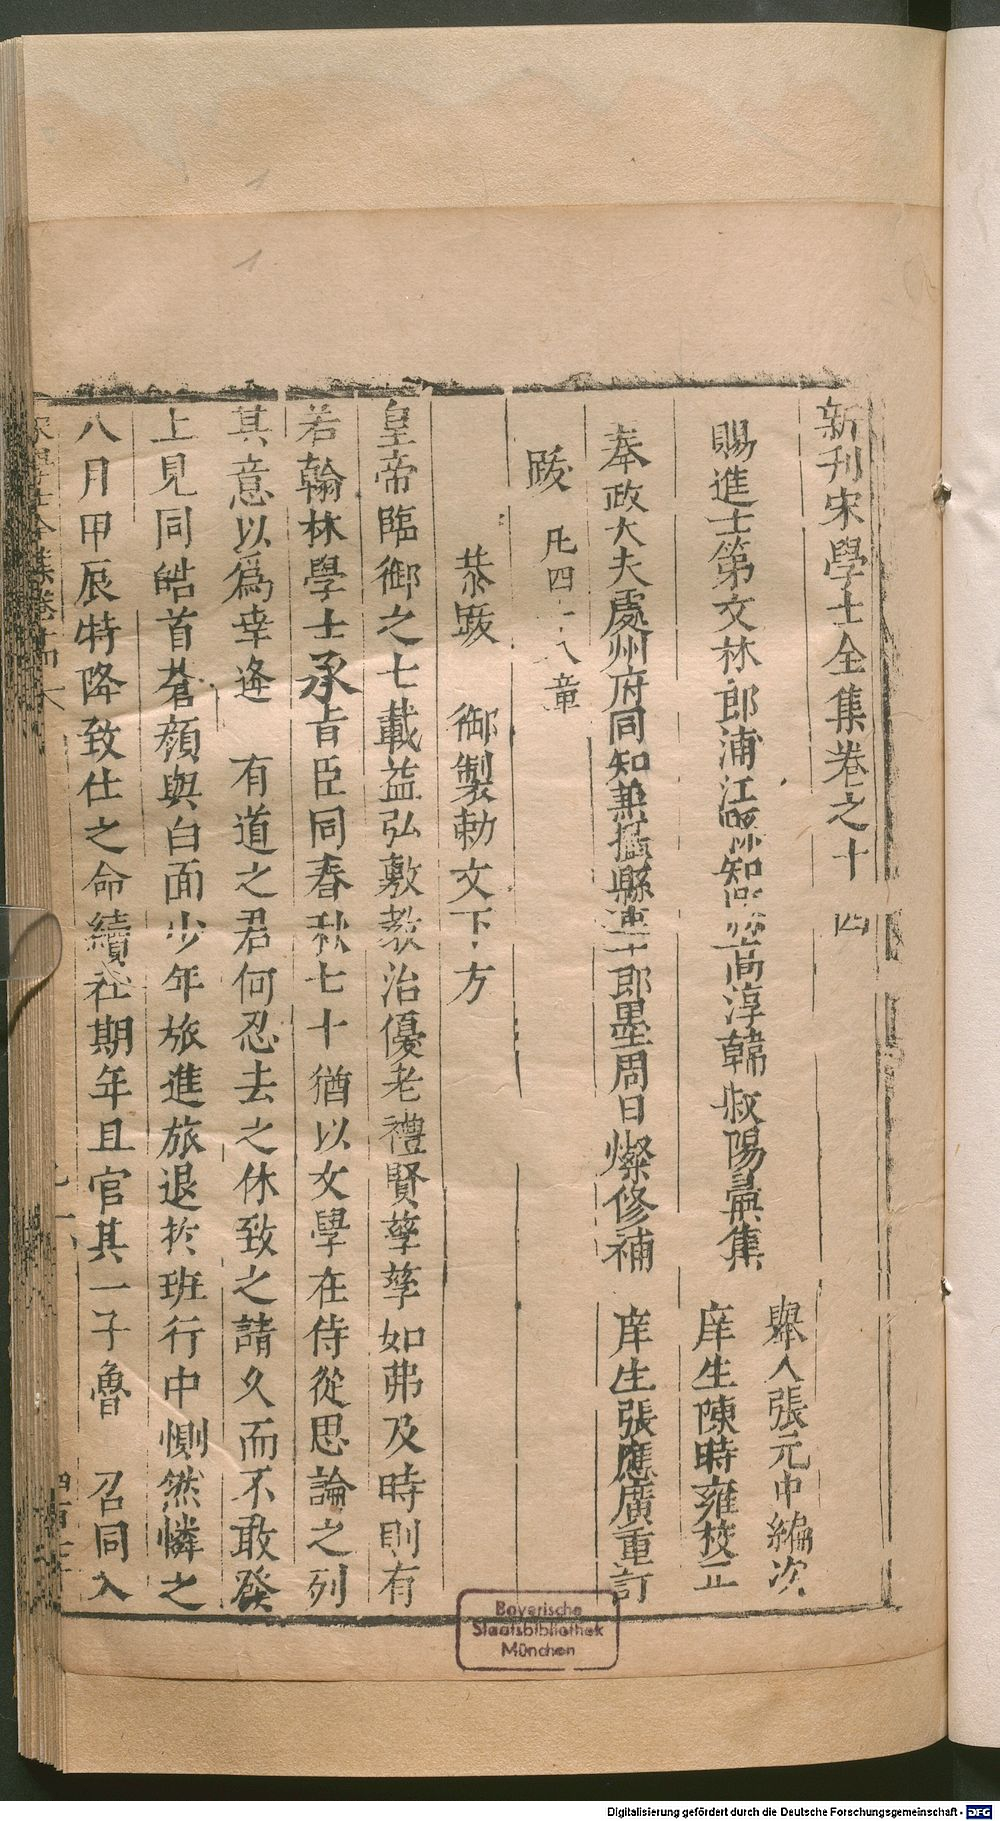 新刊宋學士全集卷之十四
賜進士第文林郎浦江縣知縣高淳韓叔陽彚集
舉人張元中編次
庠生陳時雍校正
奉政大夫處州府同知兼攝縣事十郎墨周日燦修補
庠生張應廣重訂
跋 凡四十八章
恭跋 御製勅文下方
皇帝臨御之七載益弘敷敎治優老禮賢孳孳如弗及時則有
若翰林學士承旨臣同春秋七十猶以文學在侍從思論之列
其意以爲幸逢 有道之君何忍去之休致之請久而不敢發
上見同皓首蒼顔與白面少年旅進旅退於班行中惻然憐之
八月甲辰特降致仕之命續社期年且官其一子魯 召同入
Bayerische
Staatsbibliothek
München
Digitalisierung gefördert durch die Deutsche Forschungsgemeinschaft - DFG